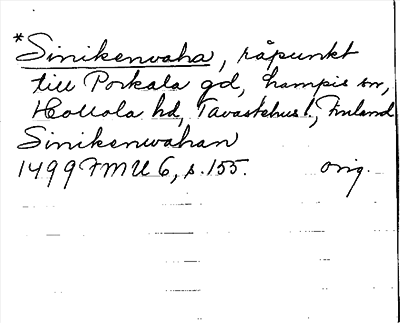 *Sinikenvaha, råpunkt
till Porkala gd, Lampis sn,
Hollola hd, Tavastehus l., Finland
Sinikenwahan
1499 FMU 6, s. 155. orig.